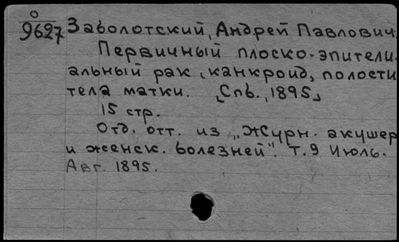 О
9627 Заболотский, Андрей Павлович
Первичный плоско-эпители-
альный рак, канкроид, полости
тела матки. [Спб., 1895]
15 стр.
Отд. отт. из „Журн. акушер
и женск. болезней". Т. 9 Июль.
Авг. 1895.